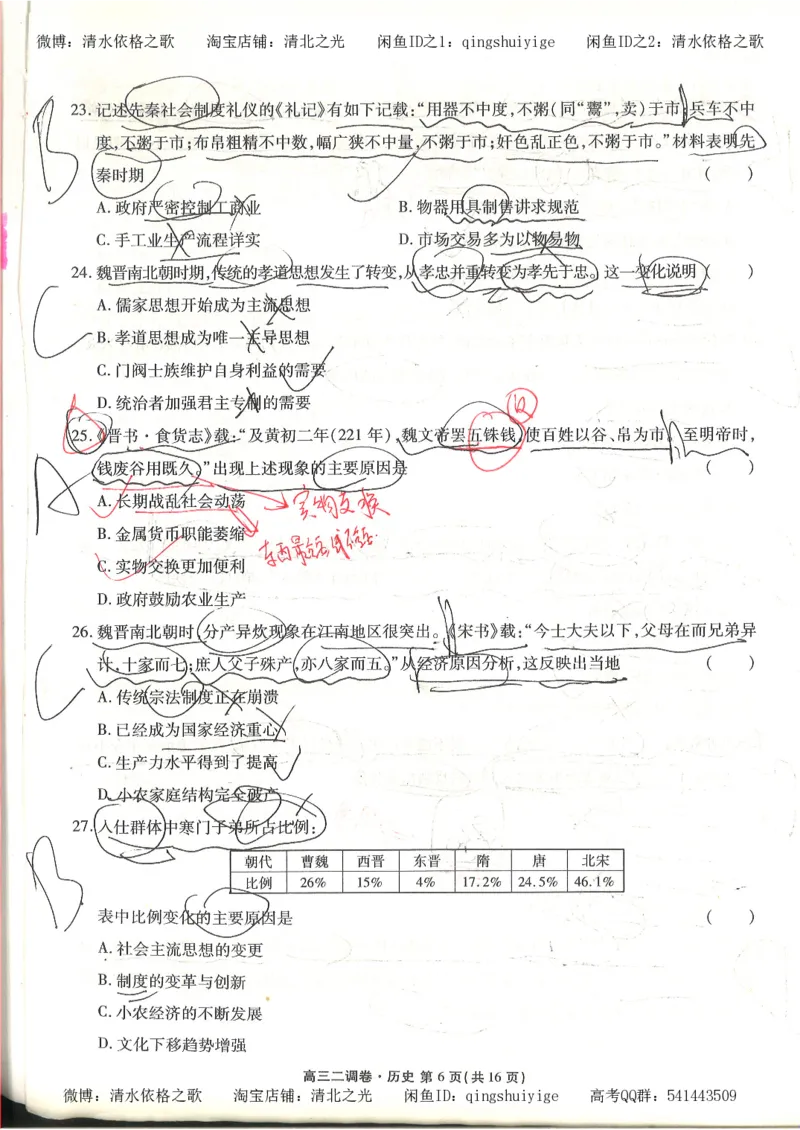 微博：清水依格之歌 淘宝店铺：清北之光 闲鱼ID之1：qingshuiyige 闲鱼ID之2：清水依格之歌
B
23. 记述先秦社会制度礼仪的《礼记》有如下记载：“用器不中度，不粥（同“鬻”，卖）于市；兵车不中
度，不粥于市；布帛粗精不中数，幅广狭不中量，不粥于市；奸色乱正色，不粥于市。”材料表明先
秦时期 （ ）
A. 政府严密控制工商业 B. 物器用具制售讲求规范
C. 手工业生产流程详实 D. 市场交易多为以物易物
C
24. 魏晋南北朝时期，传统的孝道思想发生了转变，从孝忠并重转变为孝先于忠。这一变化说明（ ）
A. 儒家思想开始成为主流思想
B. 孝道思想成为唯一主导思想
C. 门阀士族维护自身利益的需要
D. 统治者加强君主专制的需要
A
25. 《晋书·食货志》载：“及黄初二年（221 年），魏文帝罢五铢钱，使百姓以谷、帛为市。至明帝时，
钱废谷用既久。”出现上述现象的主要原因是 （ ）
A. 长期战乱社会动荡
实物交换
B. 金属货币职能萎缩
C. 实物交换更加便利
D. 政府鼓励农业生产
C
26. 魏晋南北朝时，分产异炊现象在江南地区很突出。《宋书》载：“今士大夫以下，父母在而兄弟异
计，十家而七；庶人父子殊产，亦八家而五。”从经济原因分析，这反映出当地 （ ）
A. 传统宗法制度正在崩溃
B. 已经成为国家经济重心
C. 生产力水平得到了提高
D. 小农家庭结构完全破产
B
27. 入仕群体中寒门子弟所占比例：
朝代 曹魏 西晋 东晋 隋 唐 北宋
比例 26% 15% 4% 17.2% 24.5% 46.1%
表中比例变化的主要原因是 （ ）
A. 社会主流思想的变更
B. 制度的变革与创新
C. 小农经济的不断发展
D. 文化下移趋势增强
高三二调卷·历史 第 6 页（共 16 页）
微博：清水依格之歌 淘宝店铺：清北之光 闲鱼ID：qingshuiyige 高考QQ群：541443509